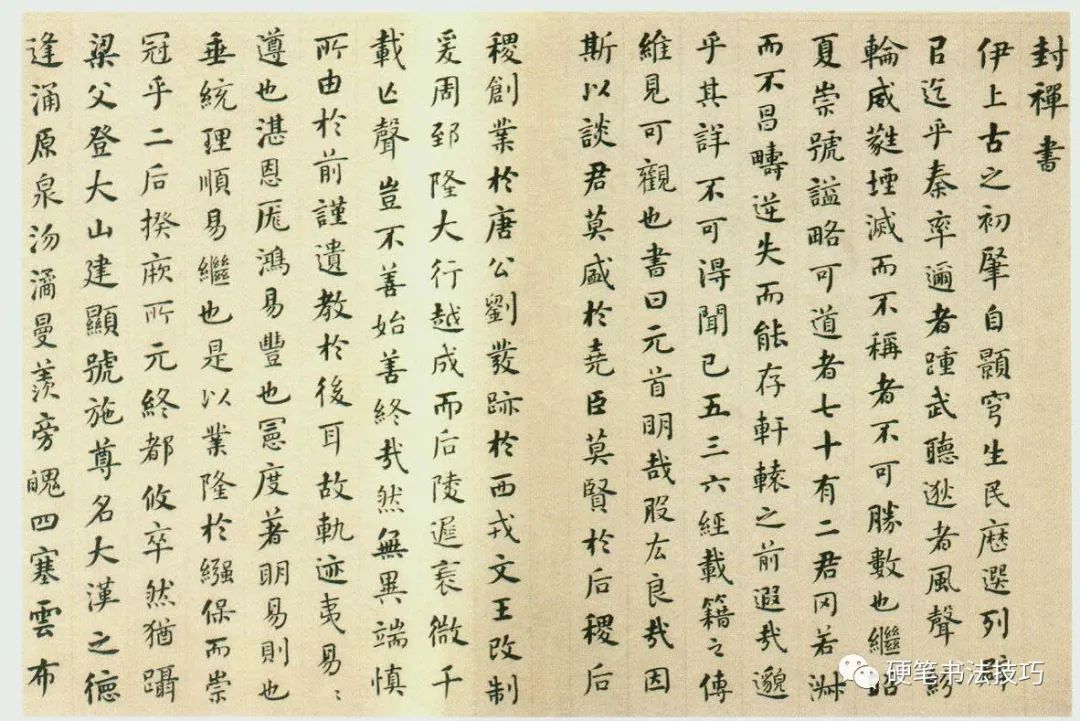 封禪書
伊上古之初肇自顥穹生民厯選列辟
以迄乎秦率邇者踵武聽逖者風聲紛
輪威蕤堙滅而不稱者不可勝數也繼昭
夏崇號謚略可道者七十有二君罔若淑
而不昌疇逆失而能存軒轅之前遐哉邈
乎其詳不可得聞已五三六經載籍之傳
維見可觀也書曰元首明哉股肱良哉因
斯以談君莫盛於堯臣莫賢於后稷后
稷創業於唐公劉發跡於西戎文王改制
爰周郅隆大行越成而后陵遲衰微千
載亡聲豈不善始善終哉然無異端慎
所由於前謹遺教於後耳故軌迹夷易〻
遵也湛恩厖鴻易豐也憲度著明易則也
垂統理順易繼也是以業隆於繈保而崇
冠乎二后揆厥所元終都攸卒然猶躡
梁父登大山建顯號施尊名大漢之德
逢涌原泉沕潏曼羨旁魄四塞雲布
硬笔书法技巧